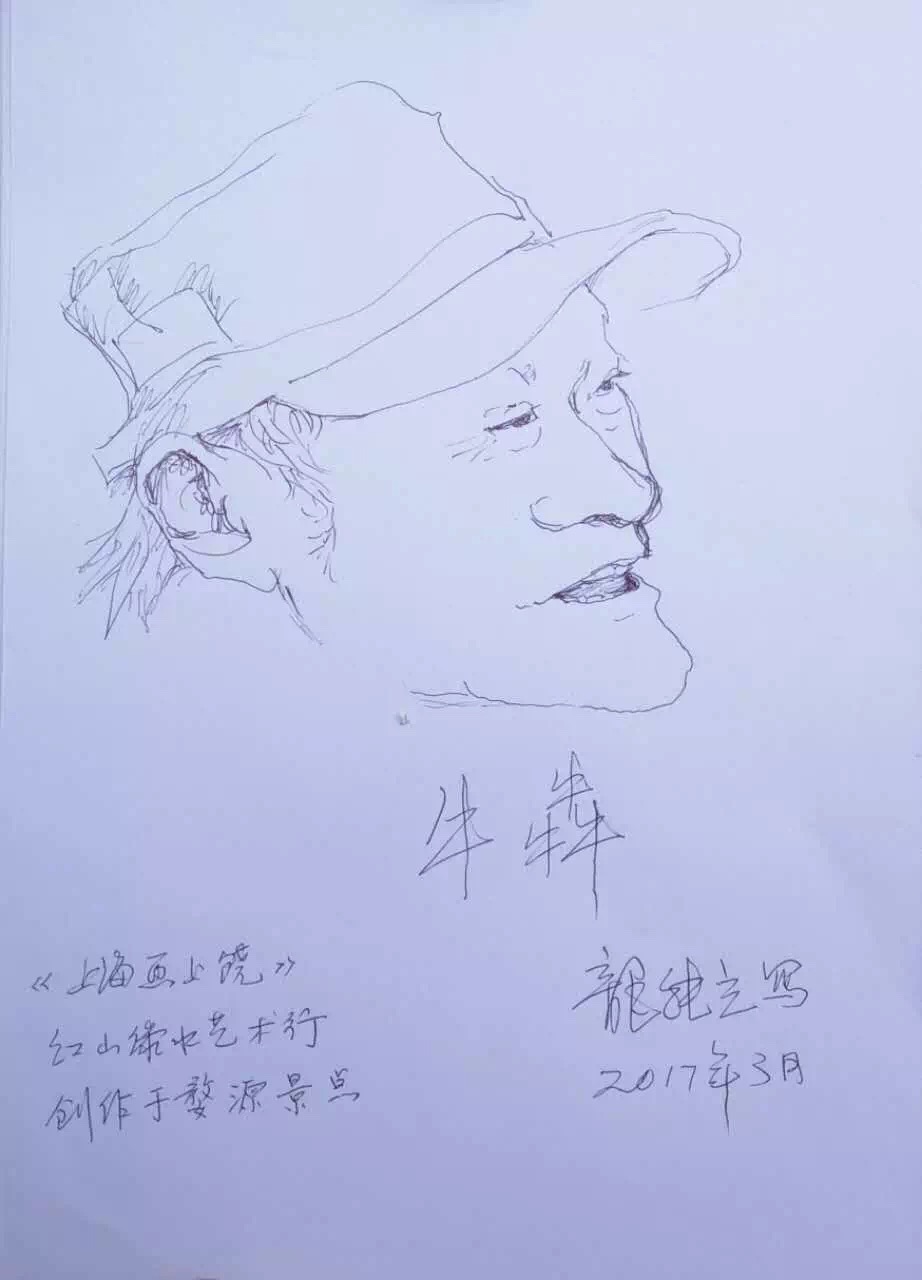 牛犇
《上海画上饶》
红山绿水艺术行
创作于婺源景点
龍纯立写
2017年3月